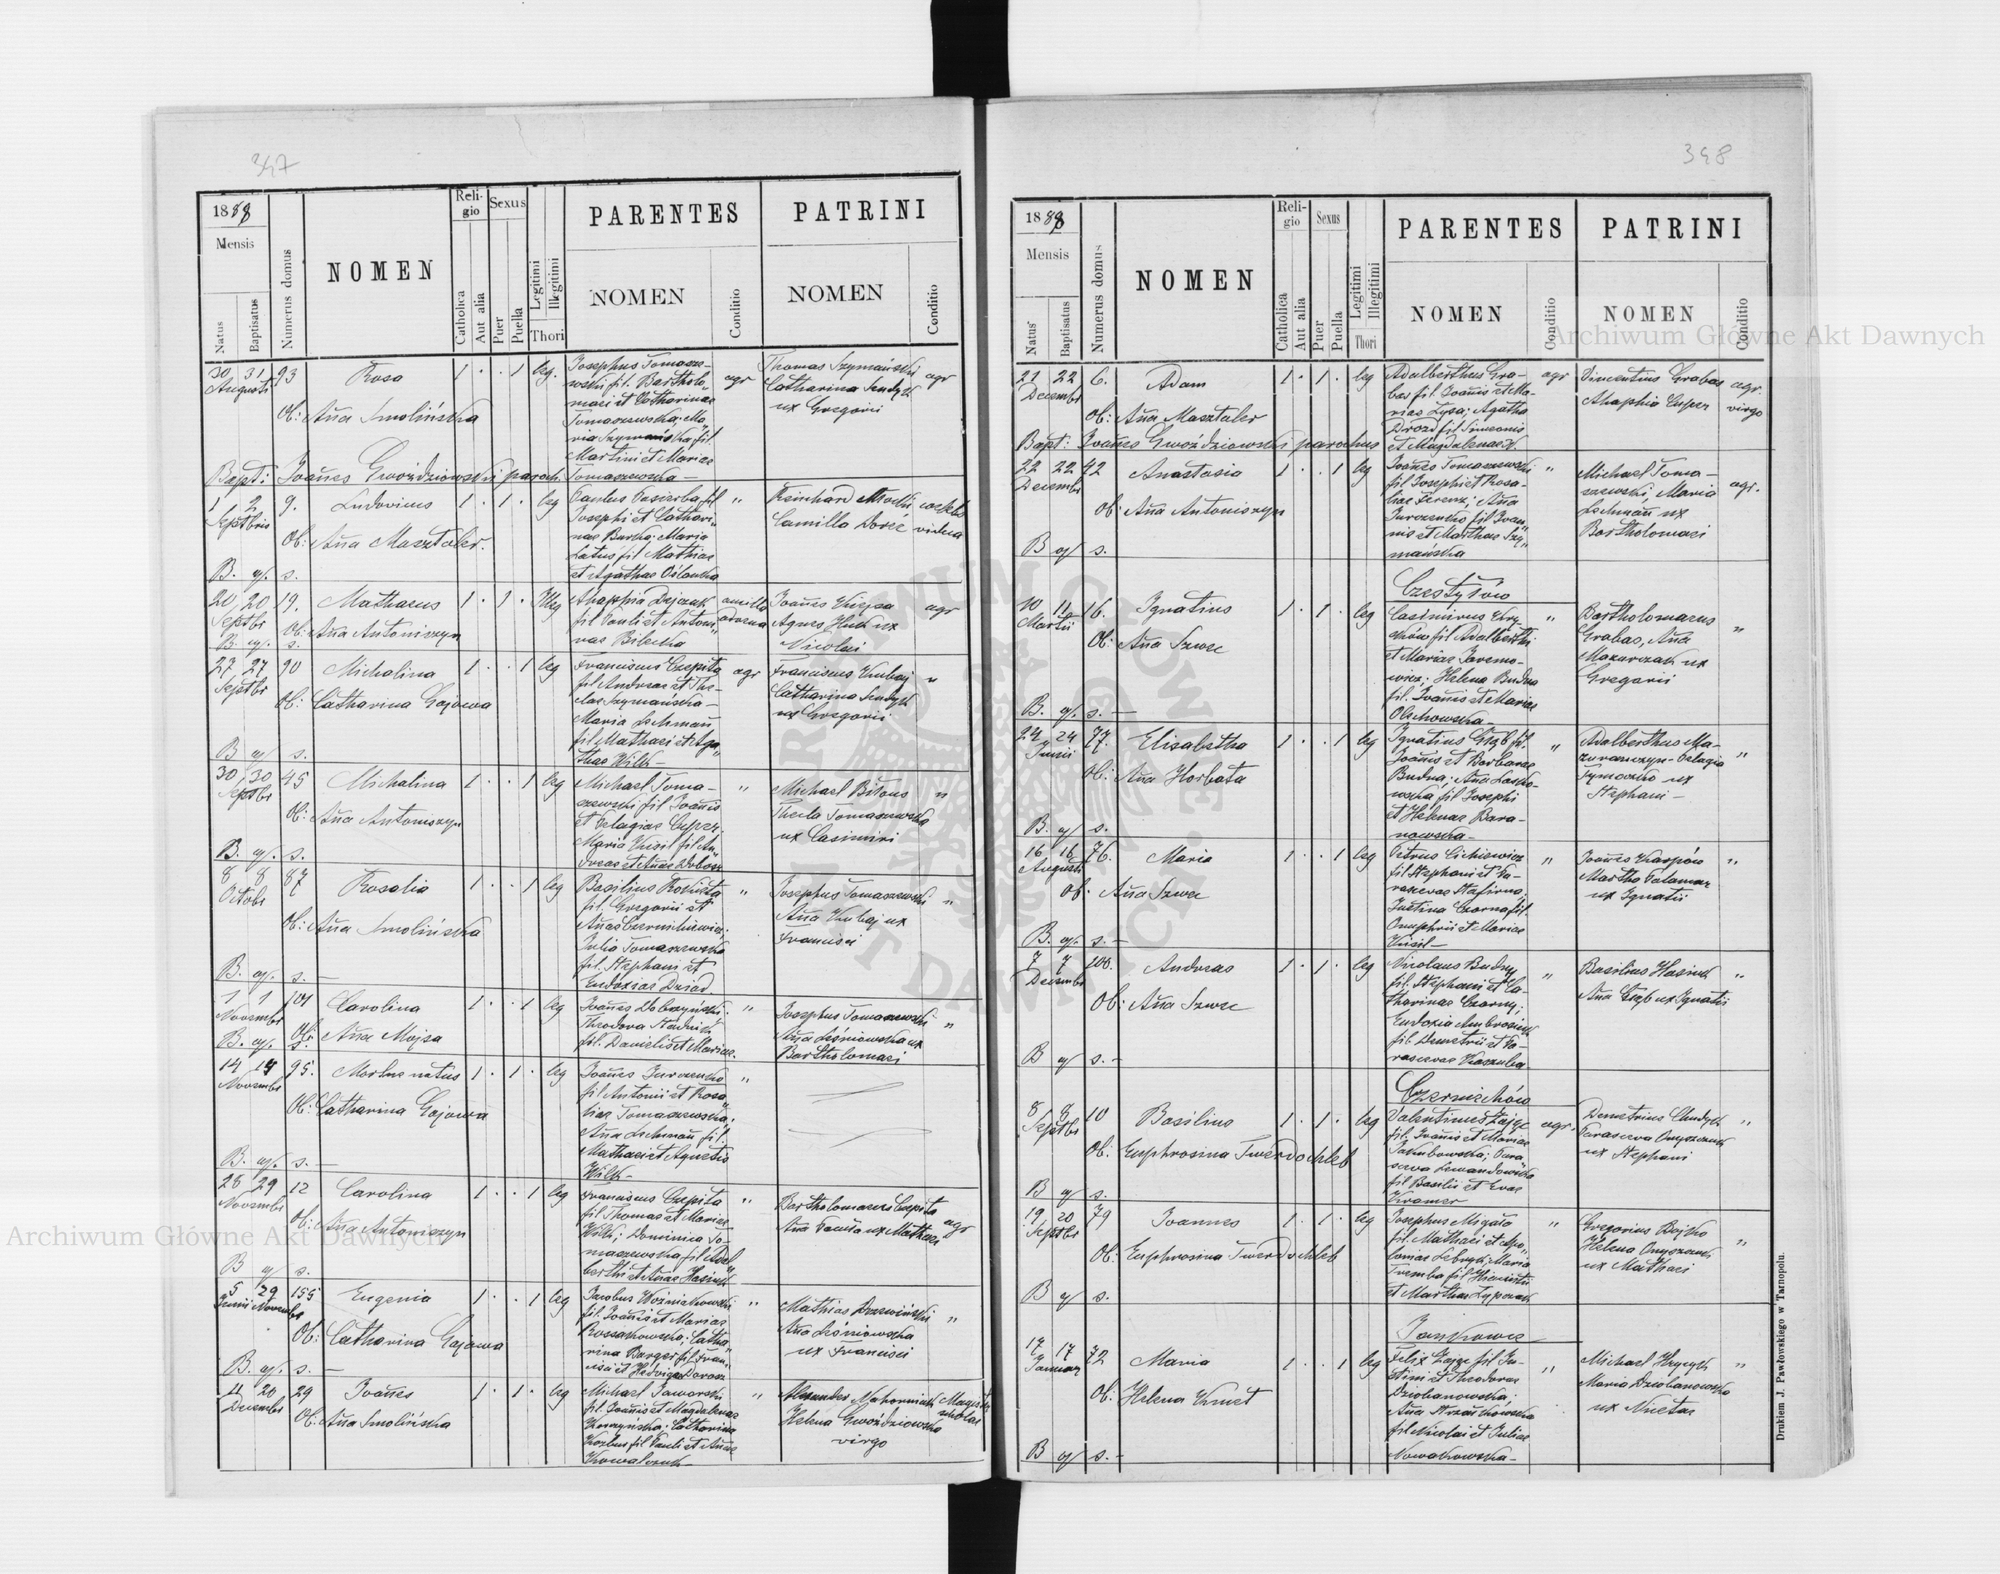 347
1888
Mensis
Natus
Baptisatus
Numerus domus
NOMEN
Religio
Catholica
Aut alia
Sexus
Puer
Puella
Legitimi
Illegitimi
Thori
PARENTES
NOMEN
Conditio
PATRINI
NOMEN
Conditio
30 31 93 Rosa 1 . . 1 leg.
Augusti
Ob: Aña Smolińska
Josephus Tomasze-
wski fil. Bartholo-
maei et Catharinae
Tomaszewska; Ma-
ria Szymańska fil
Martini et Mariae
Tomaszewska
agr
Thomas Szymański
Catharina
ux Gregorii
agr
Bapt: Joañes Gwoździowski paroch.
1 2 9. Ludovicus 1 . 1 . leg
Septbris
Ob: Aña Masztaler.
Paulus Pasierba fil
Josephi et Cathari-
nae Burka; Maria
Latus fil Mathiae
et Agathae
"
Reinhard
Camilla
vidua
B. q. s.
20 20 19. Mathaeus 1 . 1 . Illeg
Septbr
Ob: Aña Antoniszyn
Ahaphia
fil Pauli et Antoni-
nae Bilecka
ancilla
Joañes
Agnes Huk ux
Nicolai
agr
B. q. s.
27 27 90 Michalina 1 . . 1 leg
Septbr
Ob: Catharina Gajowa
Franciscus Czepita
fil Andreae et The-
clae Szymańska
Maria Lehman
fil Mathaei et Aga-
thae Wilk
agr
Franciscus Kubaj
Catharina
ux Gregorii
"
B q s.
30 30 45 Michalina 1 . . 1 leg
Septbr
Ob: Aña Antoniszyn
Michael Toma-
szewski fil Joañis
et Pelagiae Cuper;
Maria Kusil fil An-
dreae et Anae
"
Michael Bilous
Thecla Tomaszewska
ux Casimiri
"
B. q. s.
8 8 87 Rosalia 1 . . 1 leg
Octobr
Ob: Aña Smolińska
Basilius
fil Gregorii et
Anae
Julia Tomaszewska
fil. Stephani et
Eudoxiae Dziad
"
Josephus Tomaszewski
Aña Kubaj ux
Francisci
"
B. q. s.
1 1 101 Carolina 1 . . 1 leg
Novembr
Ob: Aña Mojsa
Joañes Dobrzyński;
Theodora
fil. Danielis et Mariae
"
Josephus Tomaszewski
Aña Leśniowska ux
Bartholomaei
"
B. q. s.
14 14 95. Mortuus natus 1 . 1 . leg
Novembr
Ob: Catharina Gajowa
Joañes Jurczenko
fil Antonii et Rosa-
liae Tomaszewska;
Aña Lehman fil.
Mathaei et Agnetis
Wilk
"
B. q. s.
28 29 12 Carolina 1 . . 1 leg
Novembr
Ob: Aña Antoniszyn
Franciscus Czepita
fil Thomae et Mariae
Wilk; Dominica To-
maszewska fil Adal-
berthi et Anae
"
Bartholomaeus Czepita
Aña ux Mathaei
agr
B q s.
5 29 155 Eugenia 1 . . 1 leg
Junii Novembr
Ob: Catharina Gajowa
Jacobus Woźniakowski
fil. Joañis et Mariae
Rossakowska; Catha-
rina Barger fil Fran-
cisci et Hedvigae
"
Mathias
Aña Leśniowska
ux Francisci
"
B. q. s.
11 20 29 Joañes 1 . 1 . leg
Decembr
Ob: Aña Smolińska
Michael Jaworski
fil. Joañis et Magdalenae
Catharina
fil Pauli et Anae
Kowalczuk
"
Alexander
Helena Gwoździowska
virgo
348
1888
Mensis
Natus
Baptisatus
Numerus domus
NOMEN
Religio
Catholica
Aut alia
Sexus
Puer
Puella
Legitimi
Illegitimi
Thori
PARENTES
NOMEN
Conditio
PATRINI
NOMEN
Conditio
21 22 6. Adam 1 . 1 . leg
Decembr
Ob: Aña Masztaler
Adalberthus Gra-
bas fil. Joañis et Ma-
riae Lysa; Agatha
Drozd fil Simeonis
et Magdalenae
agr
Vincentius Grabas
Ahaphia Cuper
agr.
virgo
Bapt: Joañes Gwoździowski parochus
22 22 92 Anastasia 1 . . 1 leg
Decembr
Ob: Aña Antoniszyn
Joañes Tomaszewski
fil Josephi et Rosa-
liae Ferenz; Aña
Jurczenko fil Joan-
nis et Marthae Szy-
mańska
"
Michael Toma-
szewski, Maria
Lehman ux
Bartholomaei
agr.
B q s.
Czestyłów
10 11 16. Ignatius 1 . 1 . leg
Martii
Ob: Aña Szwec
Casimirus
fil Adalberthi
et Mariae Jaremo-
wicz; Helena Budna
fil. Joañis et Mariae
Olchowska
"
Bartholomaeus
Grabas, Aña
Mazurczak ux
Gregorii
"
B. q. s.
24 24 77. Elisabetha 1 . . 1 leg
Junii
Ob: Aña Horbata
Ignatius Gzb fil.
Joañis et Barbarae
Budna; Aña Lasko-
wska fil Josephi
et Helenae Bara-
nowska
"
Adalberthus Ma-
Pelagia
Tymoczko ux
Stephani
"
B. q s.
16 16 76. Maria 1 . . 1 leg
Augusti
Ob: Aña Szwec
Petrus Cichiewicz
fil Stephani et Pa-
rascevae
Justina Czorna fil.
Onuphrii et Mariae
Kusil
"
Joañes Karpów
Martha Palamar
ux Ignatii
"
B. q. s.
7 7 100. Andreas 1 . 1 . leg
Decembr
Ob: Aña Szwec
Nicolaus Budny
fil. Stephani et Ca-
tharinae Czorny;
Eudoxia Ambrosiuk
fil. Demetrii et Pa-
rascevae
"
Basilius Hasiuk
Aña Gzb ux Ignatii
"
B q s.
Czerniechów
8 8 10 Basilius 1 . 1 . leg
Septbr
Ob: Euphrosina Twerdochleb
Valentinus Zając
fil. Joañis et Mariae
Jakubowska; Para-
sceva Lewandowska
fil Basilii et Evae
Kramer
agr.
Demetrius Chudyk
Parasceva Onyszczuk
ux Stephani
"
B q s.
19 20 79 Joannes 1 . 1 . leg
Septbr
Ob: Euphrosina Twerdochleb
Josephus Migała
fil. Mathaei et Apo-
loniae Maria
Tremba fil
et Marthae
"
Gregorius Bojko
Helena Onyszczuk
ux Mathaei
"
B q s.
Jankowce
17 17 72 Maria 1 . . 1 leg
Januar
Ob: Helena Kmet
Felix Zając fil Ju-
stini et Theodorae
Dziobanowska;
Aña
fil Nicolai et Juliae
Nowakowska
"
Michael Hrycyk
Maria Dziobanowska
ux Nicetae
"
B q s.
Drukiem J. Pawłowskiego w Tarnopolu.
Archiwum Główne Akt Dawnych
Archiwum Główne Akt Dawnych
ARCHIWUM GŁÓWNE AKT DAWNYCH